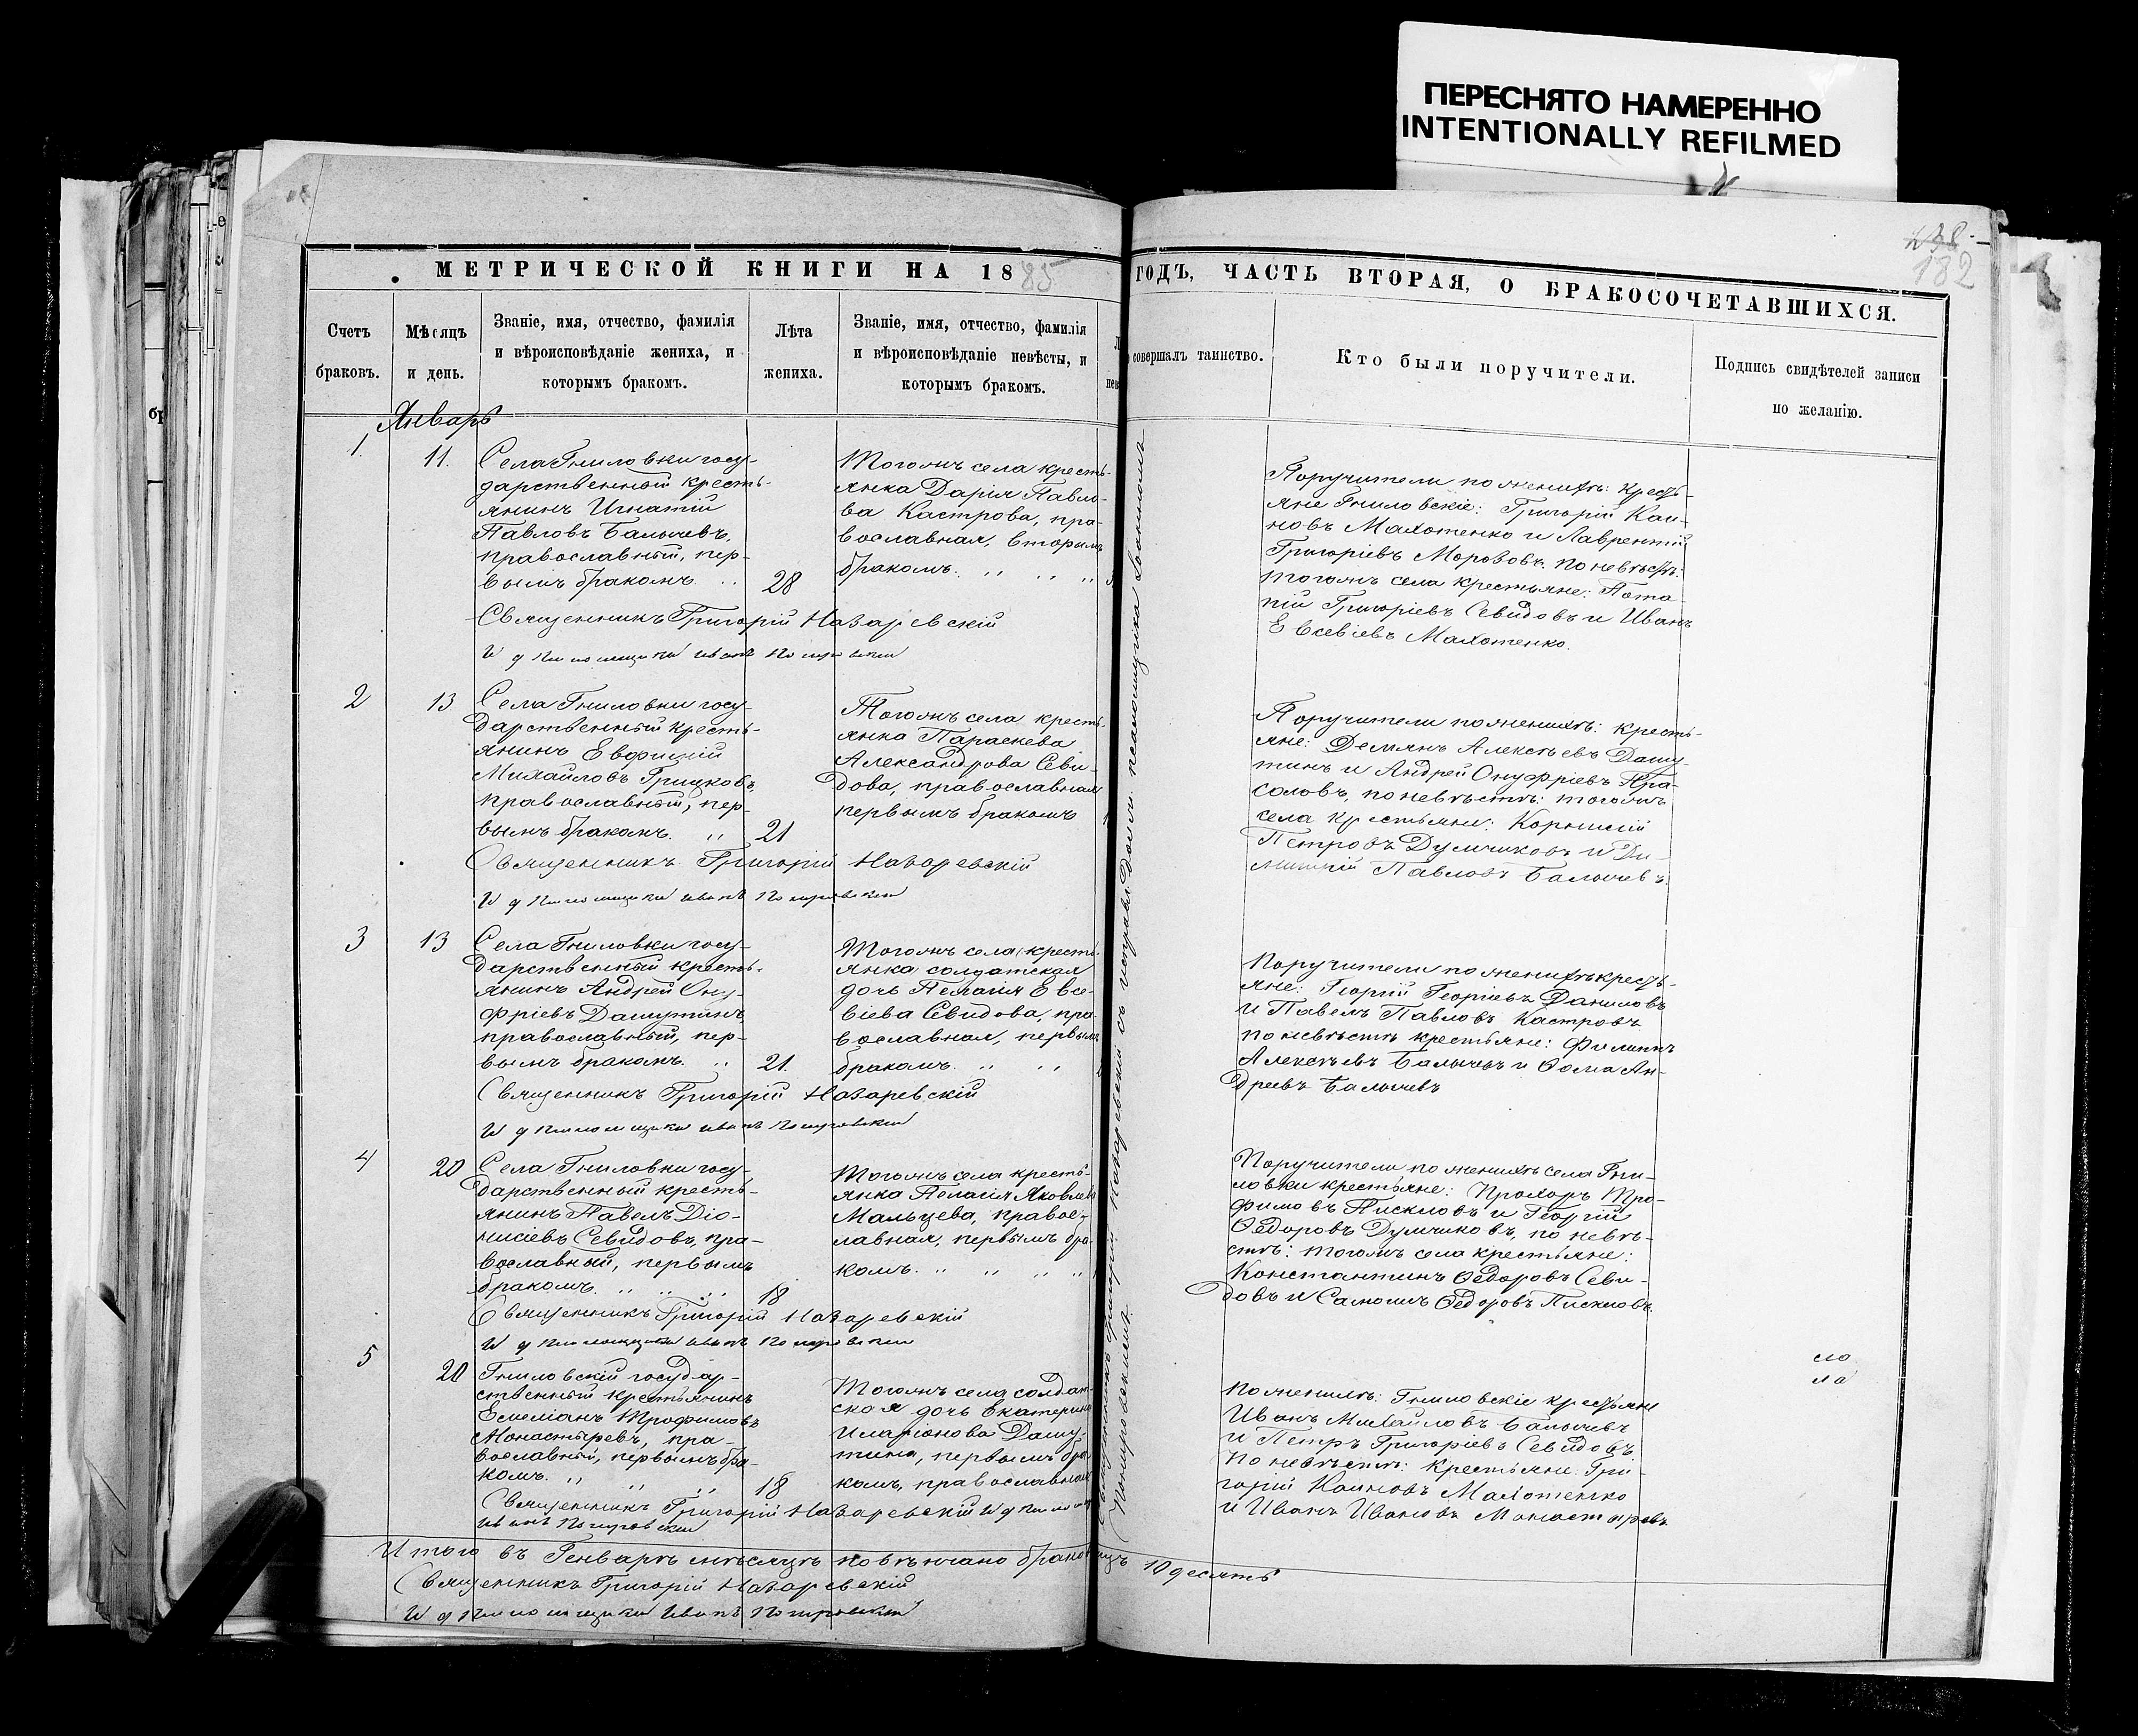 ПЕРЕСНЯТО НАМЕРЕННО
INTENTIONALLY REFILMED
138
182
МЕТРИЧЕСКОЙ КНИГИ НА 1885
ГОДЪ, ЧАСТЬ ВТОРАЯ, О БРАКОСОЧЕТАВШИХСЯ.
Счетъ
браковъ.
Мѣсяцъ
и день.
Званіе, имя, отчество, фамилія
и вѣроисповѣданіе жениха, и
которымъ бракомъ.
Лѣта
жениха.
Званіе, имя, отчество, фамилія
и вѣроисповѣданіе невѣсты, и
которымъ бракомъ.
совершалъ таинство.
Кто были поручители.
Подпись свидѣтелей записи
по желанію.
Январь
1.
11.
Села Гниловки госу-
дарственный кресть-
янинъ Игнатій
Павловъ Балычевъ,
православный, пер-
вымъ бракомъ.
28
Тогожъ села кресть-
янка Дарія Павло-
ва Кастрова, пра-
вославная, вторымъ
бракомъ.
Священникъ Григорій Назаревскій
И д псаломщика Иванъ
Поручители по женихѣ: кресть-
яне Гниловскіе: Григорій Каи-
новъ Махотенко и Лаврентій
Григоріевъ Морозовъ. по невѣстѣ:
тогожъ села крестьяне: Пота-
пій Григоріевъ Севидовъ и Иванъ
Евсевіевъ Махотенко.
2
13
Села Гниловки госу-
дарственный кресть-
янинъ Евфимій
Михайловъ Грицковъ,
православный, пер-
вымъ бракомъ.
21
Тогожъ села кресть-
янка Параскева
Александрова Севи-
дова, православная
первымъ бракомъ
Священникъ Григорій Назаревскій
И д псаломщика Иванъ
Поручители по женихѣ: кресть-
яне: Деміянъ Алексѣевъ Дашу-
тинъ и Андрей Онуфріевъ Пра-
соловъ, по невѣстѣ: тогожъ
села крестьяне: Корнилій
Петровъ Думчиковъ и Ди-
митрій Павловъ Балычевъ.
3
13
Села Гниловки госу-
дарственный кресть-
янинъ Андрей Ону-
фріевъ Дашутинъ
православный, пер-
вымъ бракомъ.
21.
Тогожъ села кресть-
янка солдатская
дочь Пелагія Евсе-
віева Севидова, пра-
вославная, первымъ
бракомъ.
Священникъ Григорій Назаревскій
И д псаломщика Иванъ
Поручители по женихѣ кресть-
яне: Георгій Георгіевъ Даниловъ
и Павелъ Павловъ Кастровъ
по невѣстѣ крестьяне: Филиппъ
Алексѣевъ Балычевъ и Ѳома Ан-
дреевъ Балычевъ
4
20
Села Гниловки госу-
дарственный кресть-
янинъ Павелъ Діо-
нисіевъ Севидовъ, пра-
вославный, первымъ
бракомъ.
18
Тогожъ села кресть-
янка Пелагія Яковлева
Мальцева, правос-
лавная, первымъ бра-
комъ.
Священникъ Григорій Назаревскій
И д псаломщика Иванъ
Поручители по женихѣ села Гни-
ловки крестьяне: Прохоръ Тро-
фимовъ Пискловъ и Георгій
Ѳедоровъ Думчиковъ, по невѣ-
стѣ: тогожъ села крестьяне:
Константинъ Ѳедоровъ Севи-
довъ и Самоилъ Ѳедоровъ Пискловъ
5
20
Гниловскій государ-
ственный крестьянинъ
Емеліанъ Трофимовъ
Монастыревъ, пра-
вославный, первымъ бра-
комъ.
18
Тогожъ села солдат-
ская дочь Екатерина
Иларіонова Дашу-
тина, первымъ бра-
комъ, православная
Священникъ Григорій Назаревскій И д
Иванъ
По женихѣ: Гниловскіе крестьяне
Иванъ Михайловъ Балычевъ
и Петръ Григоріевъ Севидовъ
По невѣстѣ: крестьяне: Гри-
горій Каиновъ Махотенко
и Иванъ Ивановъ Монастыревъ
Итого въ Генварѣ мѣсяцѣ повѣнчано браковъ 10 десять
Священникъ Григорій Назаревскій
И д псаломщика Иванъ